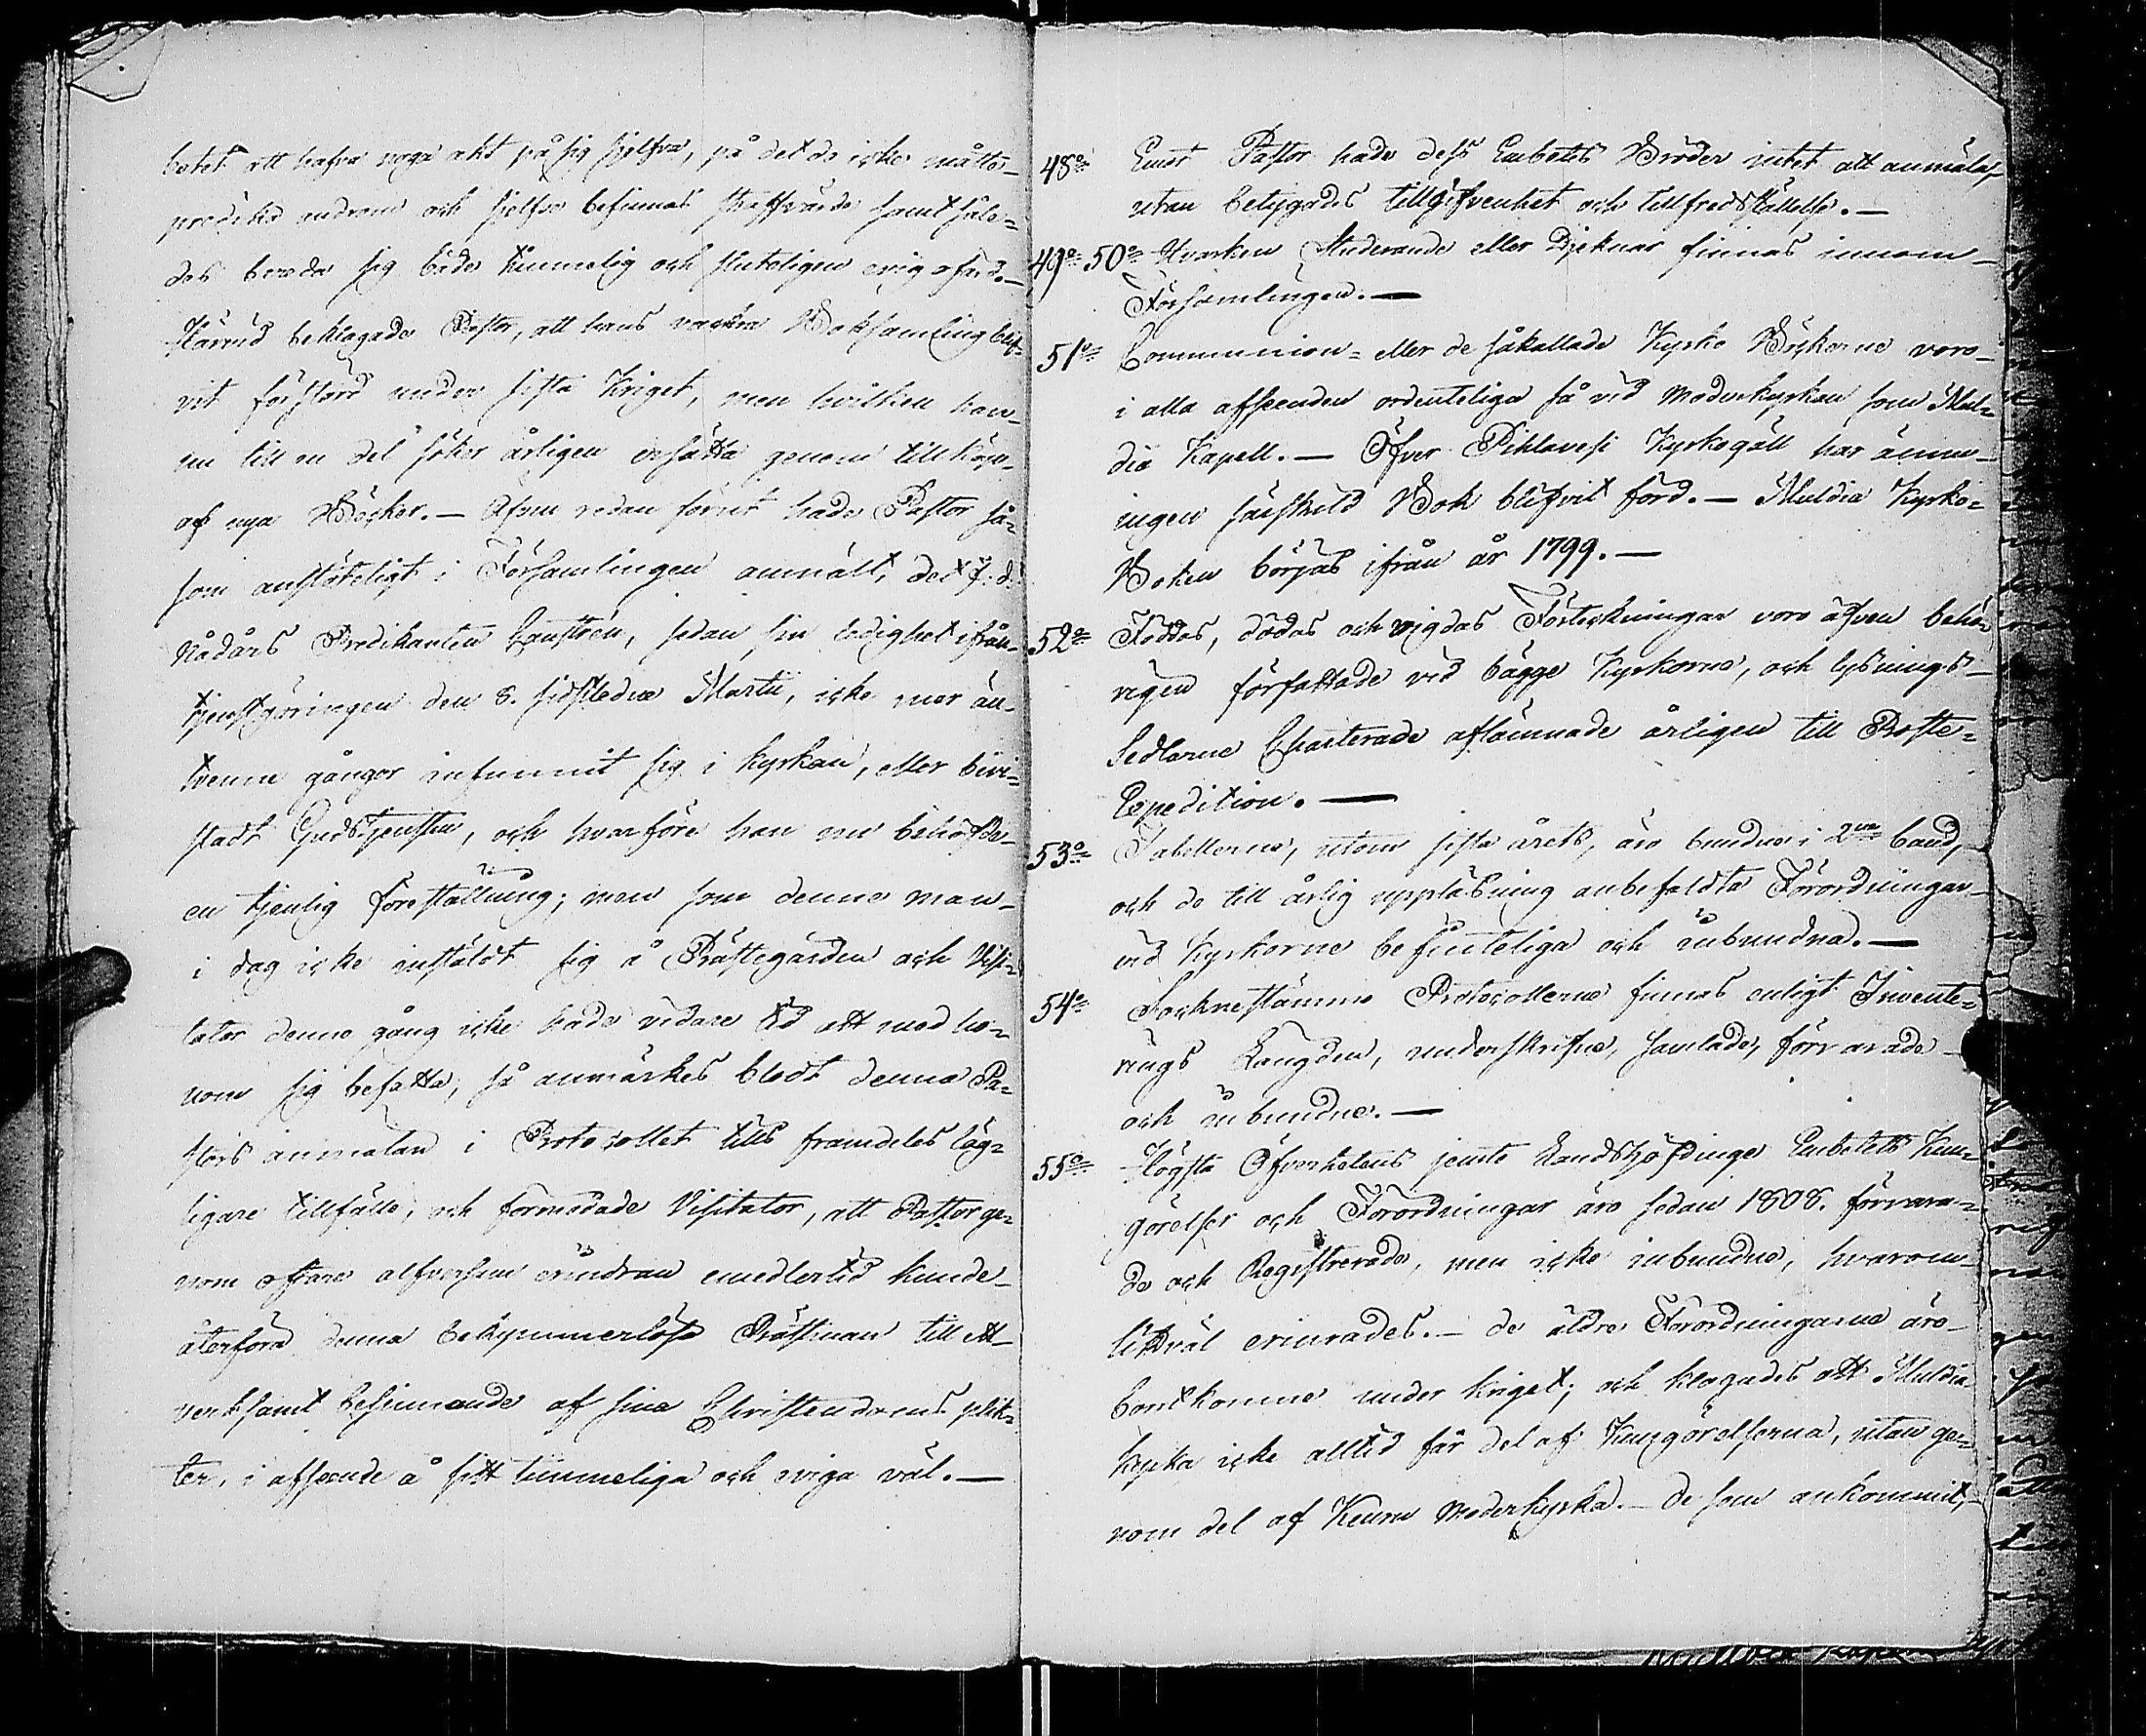 betet att hafva noga akt på sig sjelfva, på det de icke måtte
predika androm och sjelfve befinnas straffvärde samt såle-
des bereda sig både timmelig och sluteligen evig ofärd.
Härvid beklagade Pastor, att hans vackra Boksamling blif-
vit förstörd under sista Kriget, men hvilken han
nu till en del söker årligen ersätta genom tillköp
af nya Böcker. — Äfven redan förut hade Pastor så-
som anstöteligt i Församlingen anmält, det f. d.
Nådårs Predikanten Constrén, sedan sin ledighet ifrån
tjenstgöringen den 8. sidstledne Martii, icke mer än
tvenne gångor infunnit sig i Kyrkan, eller bivi-
stadt Gudstjensten, och hvarföre han nu behöfde
en tjenlig föreställning; men som denne man
i dag icke instäldt sig å Prästegården och Visi-
tator denne gång icke hade vidare tid att med ho-
nom sig befatta, så anmärkes blodt denna Pa-
stors anmälan i Protocollet tills framdeles läg-
ligare tillfälle, och förmodade Visitator, att Pastor ge-
nom oftare alfversam erindran emedlertid kunde
återföra denna bekymmerlöse Prästman till ett
verksamt besinnande af sina Christendoms plik-
ter, i afseende å sitt timmeliga och eviga väl. —
48o Emot Pastor hade dess Embetes Bröder intet att anmäla,
utan betygades tillgifvenhet och tillfredställelse. —
49o 50o Hvarken Studerande eller Djeknar finnas innom
Församlingen. —
51o Communion- eller de såkallade Kyrko Böckerne voro
i alla afseenden ordenteliga så vid Moderkyrkan som Mul-
dia Kapell. — Öfver Pihlavesi Kyrkogäll har ännu
ingen särskild Bok blifvit förd. — Muldia Kyrko-
Boken börjas ifrån år 1799. —
52o Föddas, dödas och vigdas Förteckningar voro äfven behö-
rigen författade vid bägge Kyrkorne, och lysnings-
Sedlarne Charterade aflämnade årligen till Proste-
Expedition. —
53o Tabellerne, utom sista årets, äro bundne i 2ne band,
och de till årlig uppläsning anbefaldta Förordningar
vid Kyrkorne befinteliga och inbundna. —
54o Sockne stämmo Protocollerne finnas enligt Invente-
rings Längden, underskrifne, samlade, förvarade
och inbundne. —
55o Högsta Öfverhetens jemte Landshöfdinge Embetets Kun-
görelser och Förordningar äro sedan 1808. förvara-
de och Registrerade, men icke inbundne, hvarom
likväl erinrades. — de äldre Förordningarne äro
bortkomne under kriget; och klagades att Muldia
kyrka icke alltid får del af Kungörelserna, utan ge-
nom del af Keuru Moderkyrka. — de som ankommit,